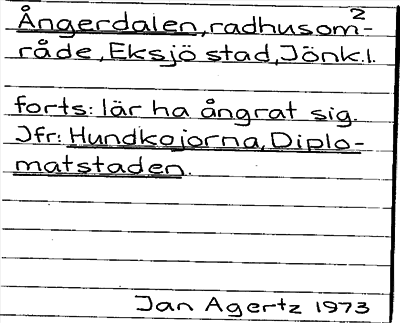 2
Ångerdalen, radhusom-
råde, Eksjö stad, Jönk.l.
forts: lär ha ångrat sig.
Jfr: Hundkojorna, Diplo-
matstaden.
Jan Agertz 1973